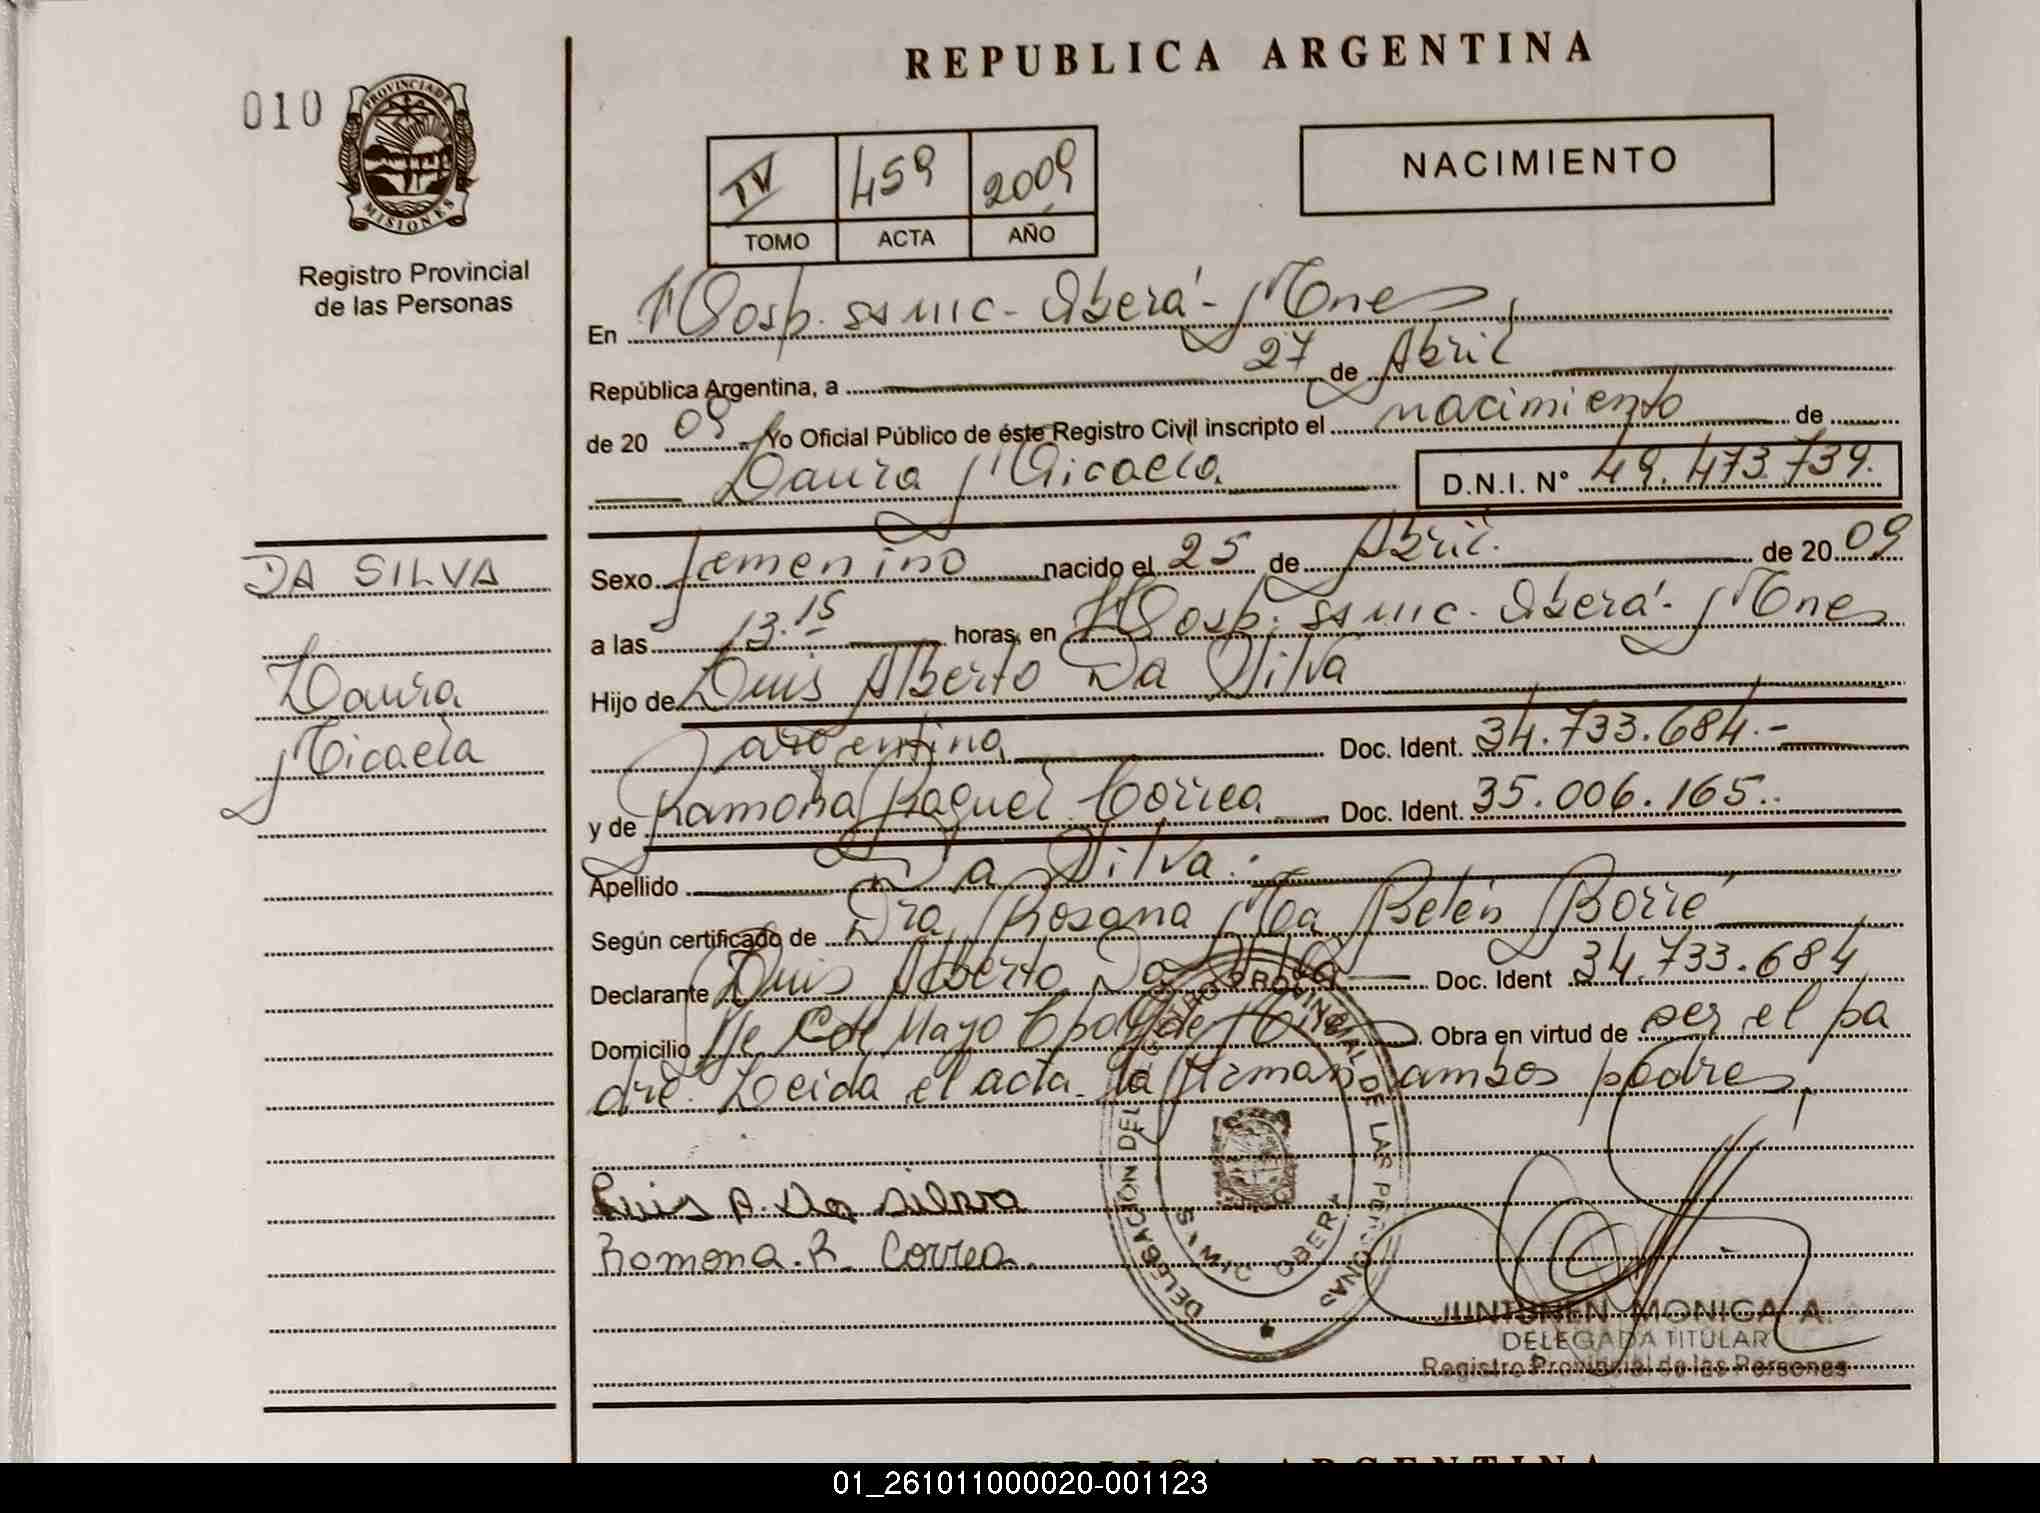 REPUBLICA ARGENTINA
010
PROVINCIA DE
MISIONES
Registro Provincial
de las Personas
IV 459 2009
TOMO ACTA AÑO
NACIMIENTO
En Hosp. SAMIC - Oberá - Mnes,
República Argentina, a 27 de Abril
de 20 09 Yo Oficial Público de éste Registro Civil inscripto el nacimiento de
Laura Micaela
D.N.I. N° 49.473.739.
DA SILVA
Laura
Micaela
Sexo femenino nacido el 25 de Abril. de 20 09
a las 13.15 horas, en Hosp. SAMIC - Oberá - Mnes
Hijo de Luis Alberto Da Silva
argentina Doc. Ident. 34.733.684.-
y de Ramona Raquel Correa Doc. Ident. 35.006.165..
Apellido Da Silva.
Según certificado de Dra. Rosana Ma Belén Borré
Declarante Luis Alberto Da Doc. Ident 34.733.684
Domicilio de Mayo Obra en virtud de ser el pa
dre. Leida el acta la firman ambos padres,
Luis A. Da Silva
Ramona. R. Correa.
DELEGACIÓN DEL REGISTRO PROVINCIAL DE LAS PERSONAS
OBERÁ
JUNTUNEN MONICA A.
DELEGADA TITULAR
Registro Provincial de las Personas
REPUBLICA ARGENTINA
01_261011000020-001123